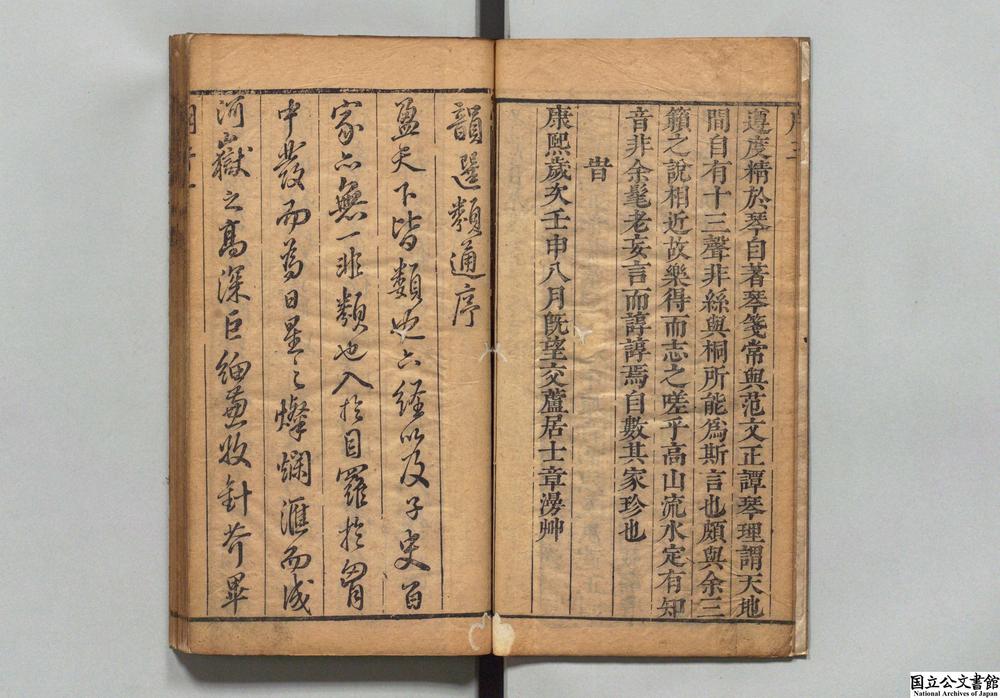 遵度精於琴自著琴箋常與范文正譚琴理謂天地
間自有十三聲非絲與桐所能爲斯言也頗與余三
籟之說相近故樂得而志之嗟乎高山流水定有知
音非余髦老妄言而諄諄焉自數其家珍也
旹
康熙歲次壬申八月旣望交蘆居士章澇艸
韻選類通序
盈天下皆類也六經以及子史百
家亦無一非類也入於目羅於胷
中發而爲日星之燦爛滙而成
河嶽之高深巨細兼收針芥畢
国立公文書館
National Archives of Japan